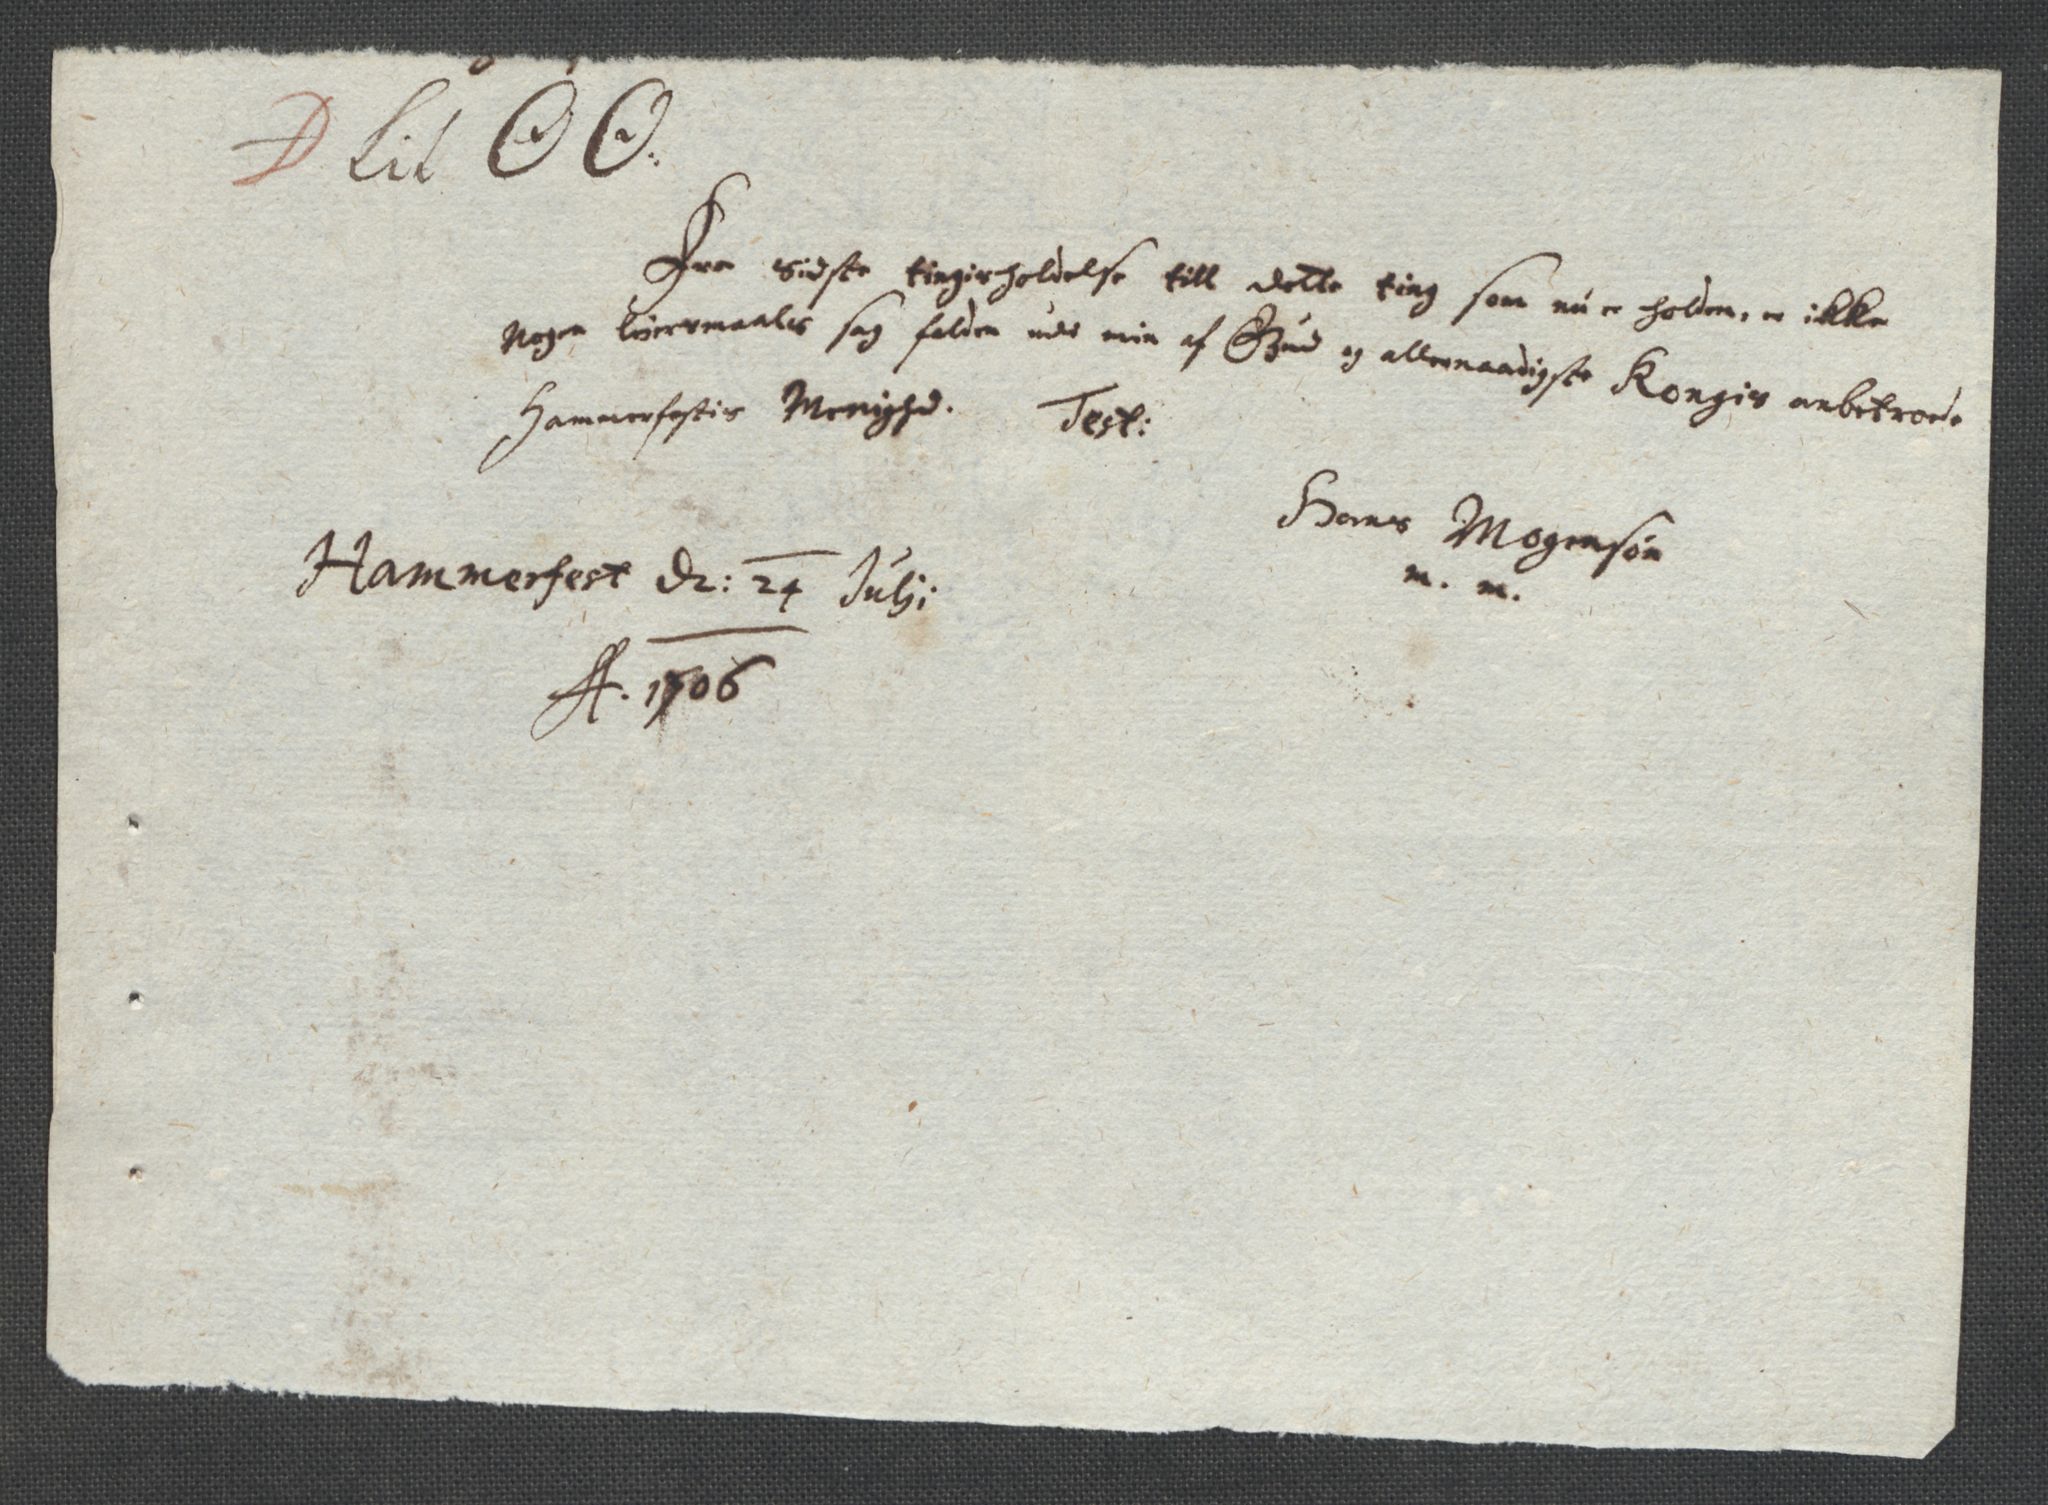 D Lit OO:
Fra sidste tingisholdelse till dette ting som nu er holden, er ikke
Nogen leiermaalis sag falden udi min af Gud og allernaadigste Kongis anbetroede
Hammerfestis Menighd. Test:
Hans Mogensøn
m. m.
Hammerfest d: 24 Julij
A. 1706